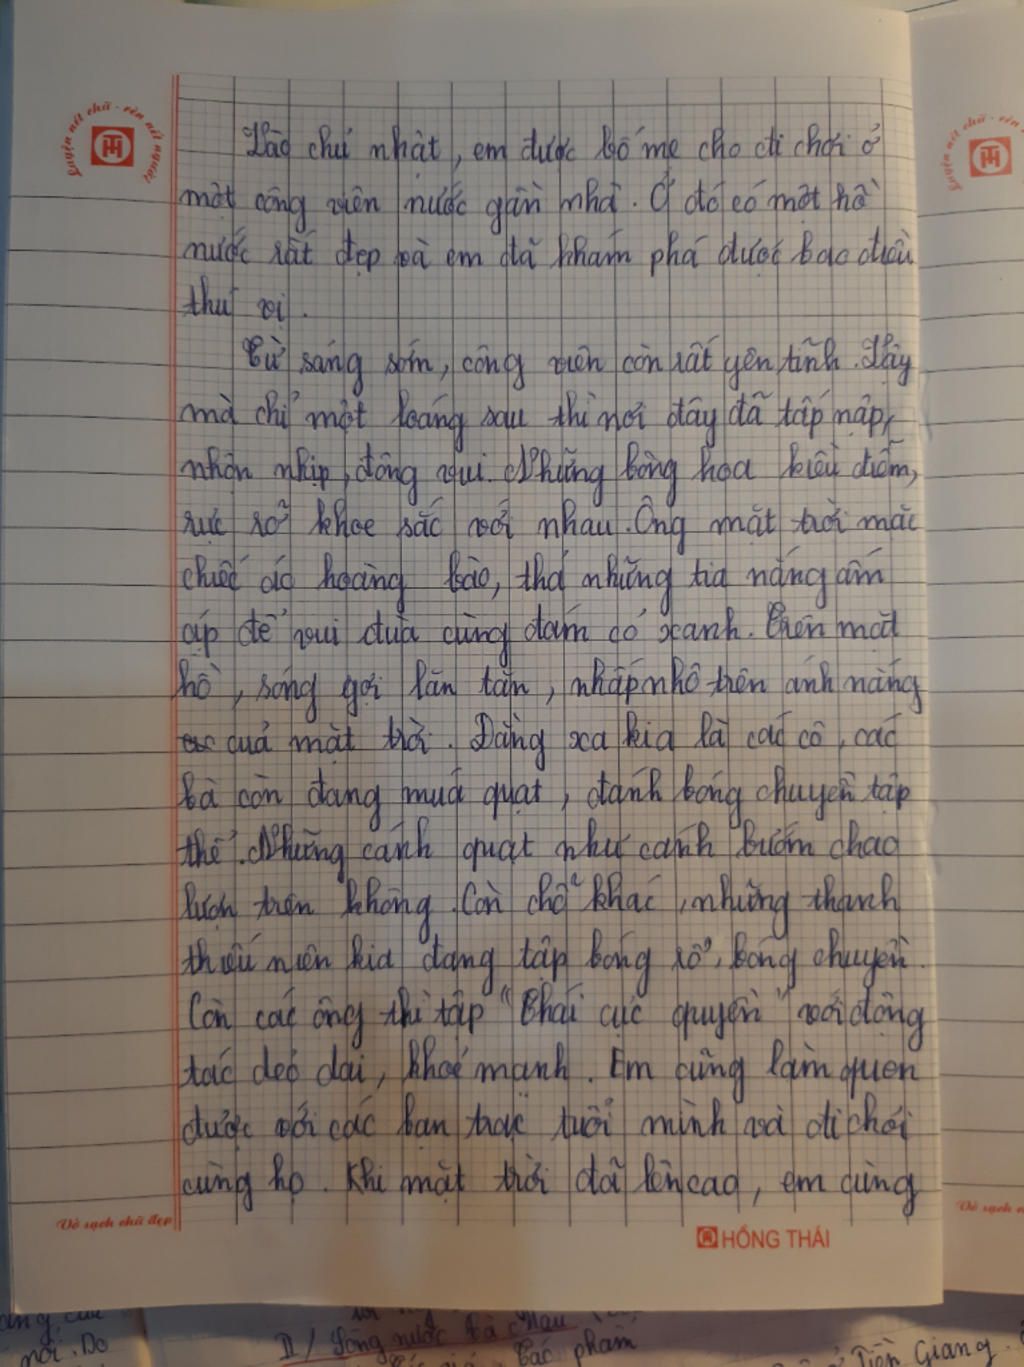 Luyện nét chữ - rèn nết người
Vào chủ nhật, em được bố mẹ cho đi chơi ở
một công viên nước gần nhà. Ở đó có một hồ
nước rất đẹp và em đã khám phá được bao điều
thú vị.
Từ sáng sớm, công viên còn rất yên tĩnh. Vậy
mà chỉ một loáng sau thì nơi đây đã tấp nập,
nhộn nhịp, đông vui. Những bông hoa kiều diễm,
rực rỡ khoe sắc với nhau. Ông mặt trời mặc
chiếc áo hoàng bào, thả những tia nắng ấm
áp để vui đùa cùng đám cỏ xanh. Trên mặt
hồ, sóng gợi lăn tăn, nhấp nhô trên ánh nắng
quả mặt trời. Đằng xa kia là các cô, các
bà còn đang múa quạt, đánh bóng chuyền tập
thể. Những cánh quạt như cánh bướm chao
lượn trên không. Còn chỗ khác, những thanh
thiếu niên kia đang tập bóng rổ, bóng chuyền.
Còn các ông thì tập "Thái cực quyền" với động
tác dẻo dai, khoẻ mạnh. Em cũng làm quen
được với các bạn trạc tuổi mình và đi chơi
cùng họ. Khi mặt trời đã lên cao, em cùng
Vở sạch chữ đẹp
HỒNG THÁI
II/ Sông nước Cà Mau
Tác phẩm
Tiền Giang